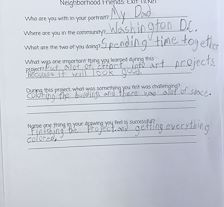 Neighborhood Friends: Exit Ticket
Who are you with in your portrait? My Dad
Where are you in the community? Washington Dc.
What are the two of you doing? Spending time together
What was one important thing you learned during this
project? Put alot of effort into art projects
because it will look good.
During this project, what was something you felt was challenging?
coloring the buildings and there was alot of space.
Name one thing in your drawing you feel is successful?
Finishing the Project and getting everything
colored.